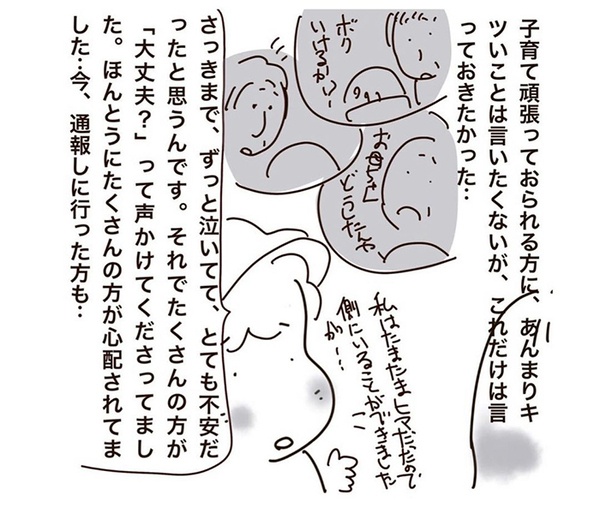 子育て頑張っておられる方に、あんまりキ
ツいことは言いたくないが、これだけは言
っておきたかった…
ボク
いけるか?
お母さん
どうしたんや
私はたまたまヒマだったので
側にいることができました
が…
さっきまで、ずっと泣いてて、とても不安だ
ったと思うんです。それでたくさんの方が
「大丈夫?」って声かけてくださってまし
た。ほんとうにたくさんの方が心配されてま
した…今、通報しに行った方も…